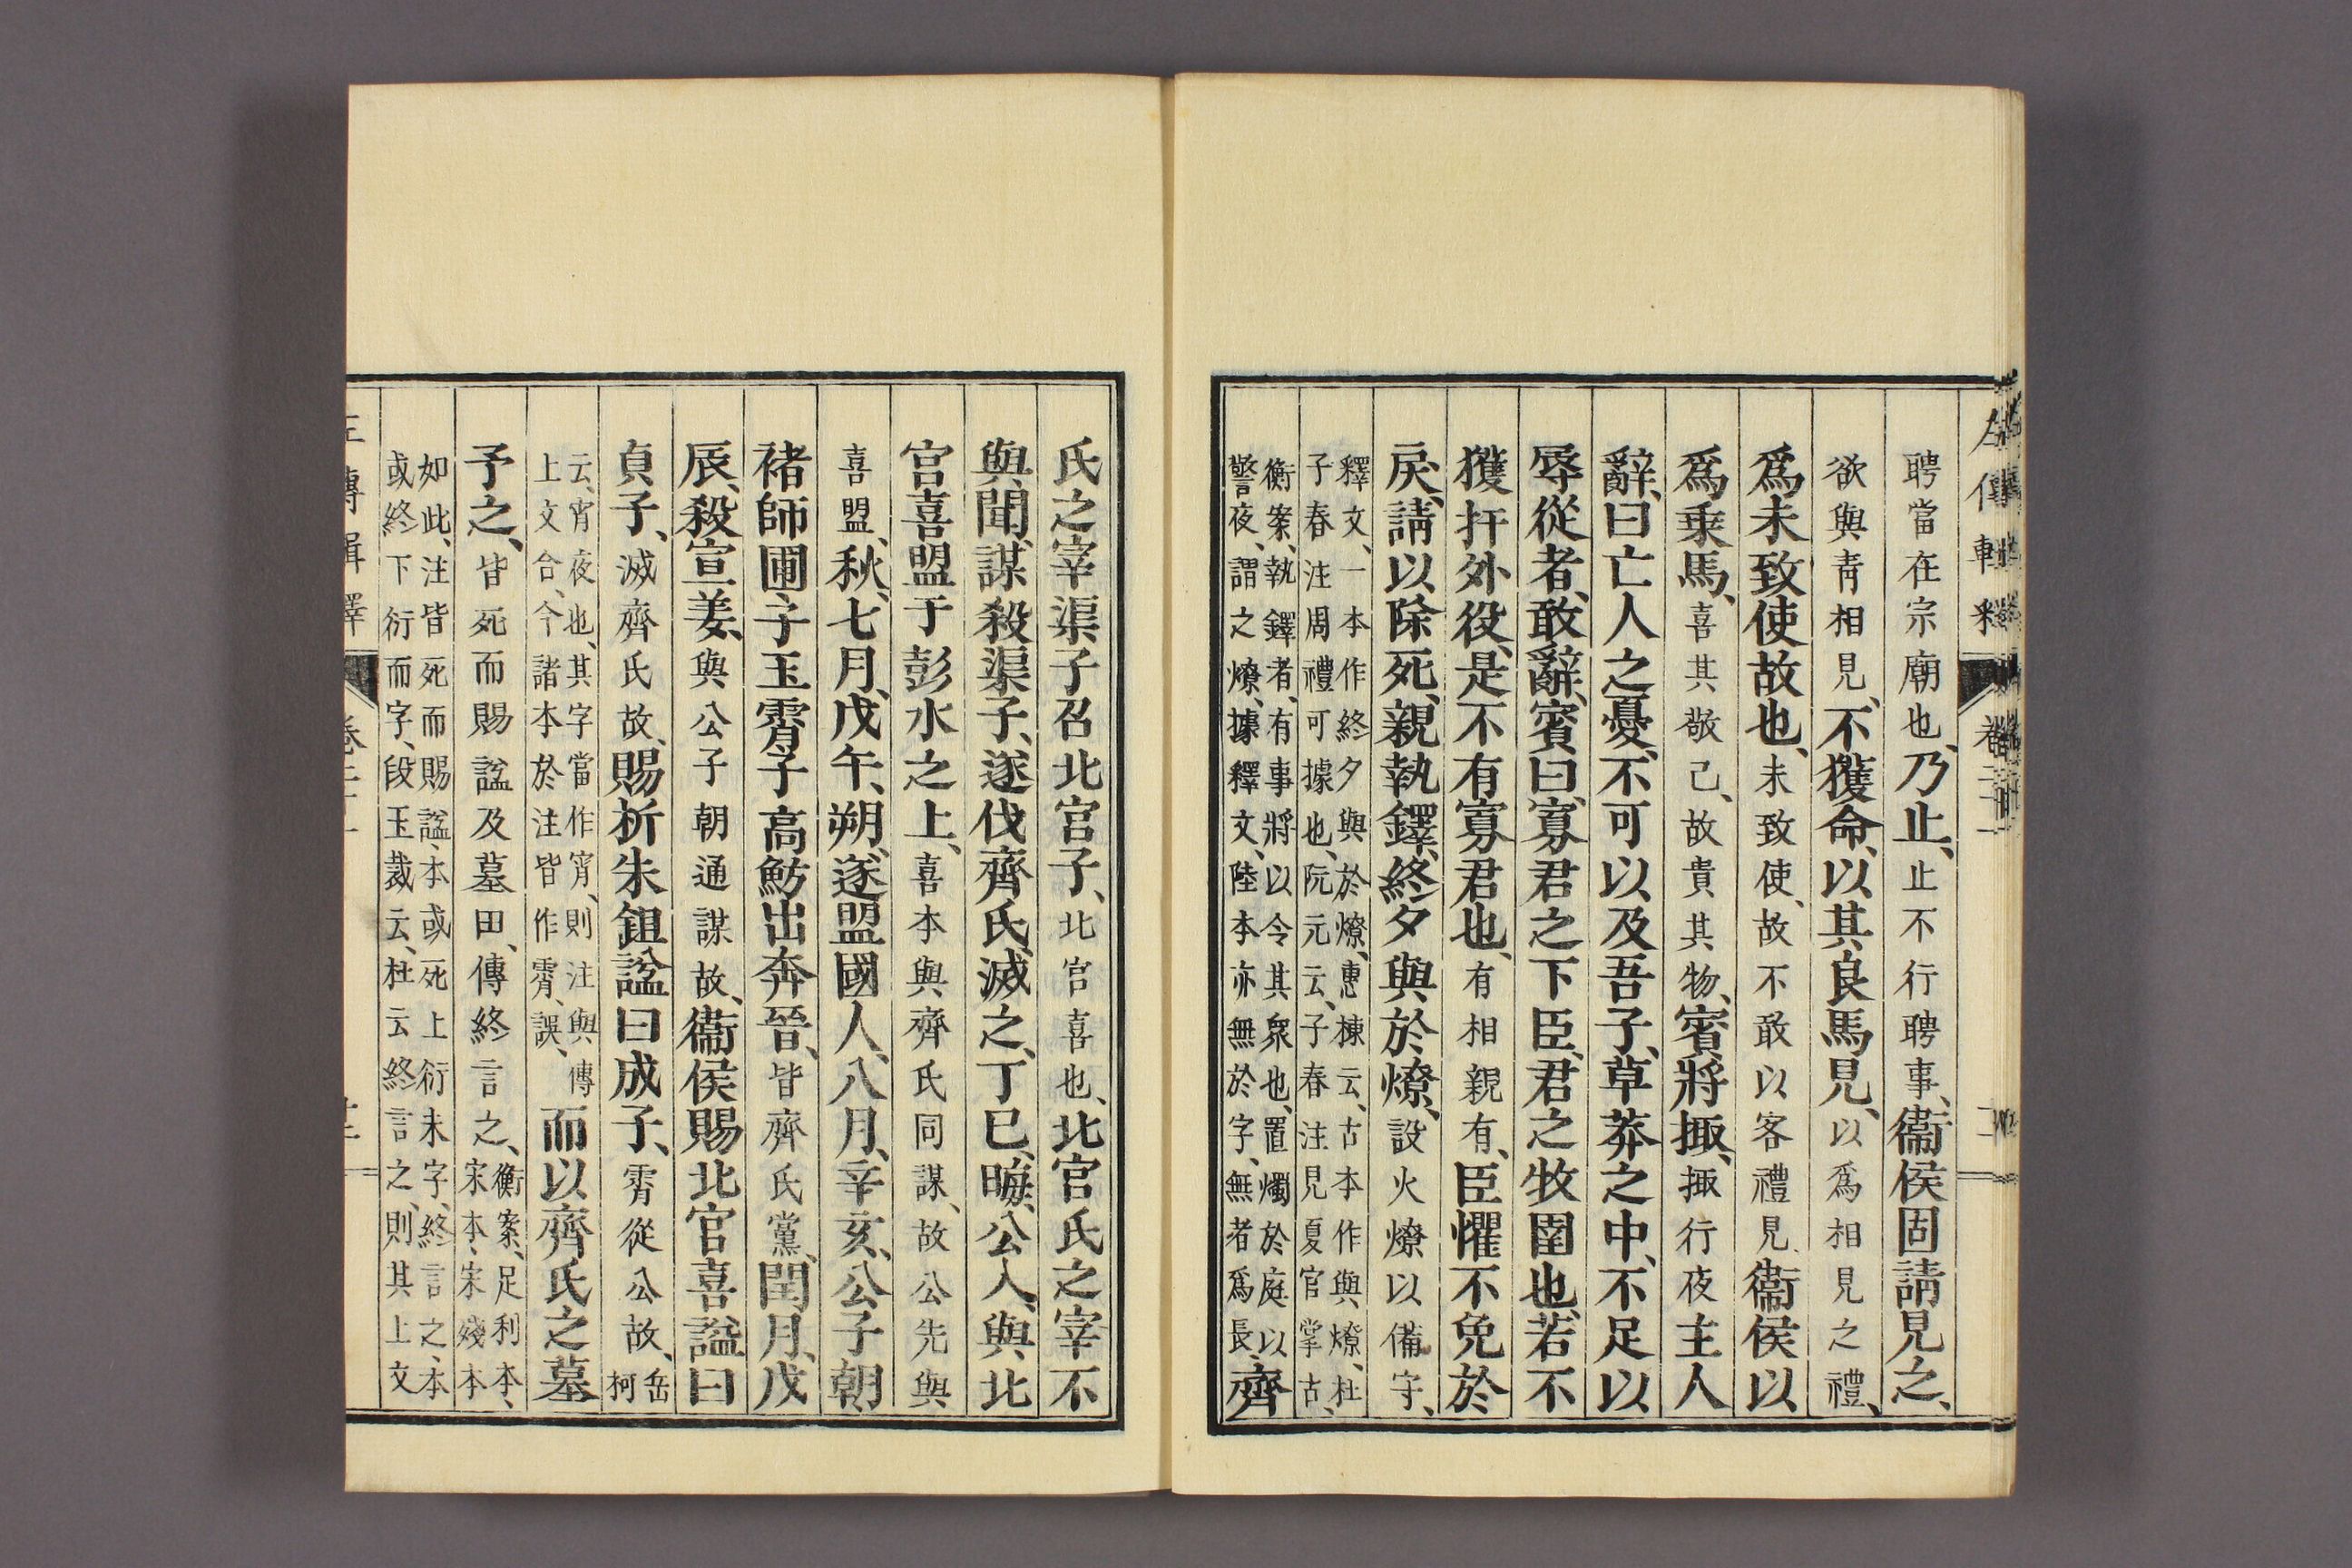 聘當在宗廟也、乃止、止不行聘事、衞侯固請見之、
欲與青相見、不獲命、以其良馬見、以爲相見之禮、
爲未致使故也、未致使、故不敢以客禮見、衞侯以
爲乗馬、喜其敬己、故貴其物、賓將掫、掫行夜主人
辭、曰亡人之憂、不可以及吾子、草莽之中、不足以
辱從者、敢辭、賓曰、寡君之下臣、君之牧圉也、若不
獲扞外役、是不有寡君也、有相親有、臣懼不免於
戻、請以除死、親執鐸、終夕與於燎、設火燎以備守、
釋文、一本作終夕與於燎、惠棟云、古本作與燎、杜
子春注周禮可據也、阮元云、子春注見夏官掌古、
衡案、執鐸者、有事將以令其衆也、置燭於庭以
警夜、謂之燎、據釋文、陸本亦無於字、無者爲長、齊
氏之宰渠子召北宮子、北宮喜也、北宮氏之宰不
與聞、謀殺渠子、遂伐齊氏、滅之、丁巳、晦、公入、與北
宮喜盟于彭水之上、喜本與齊氏同謀、故公先與
喜盟、秋、七月、戊午、朔、遂盟國人、八月、辛亥、公子朝、
褚師圃、子玉霄子高魴出奔晉、皆齊氏黨、閏月、戊
辰、殺宣姜、與公子朝通謀故、衞侯賜北宮喜諡曰
貞子、滅齊氏故、賜析朱鉏諡曰成子、霄從公故、岳柯
云、宵夜也、其字當作宵、則注與傳
上文合、今諸本於注皆作霄、誤、而以齊氏之墓
予之、皆死而賜諡及墓田、傳終言之、衡案、足利本、
宋本、宋殘本
如此、注皆死而賜諡、本或死上衍未字、終言之、本
或終下衍而字、段玉裁云、杜云終言之、則其上文